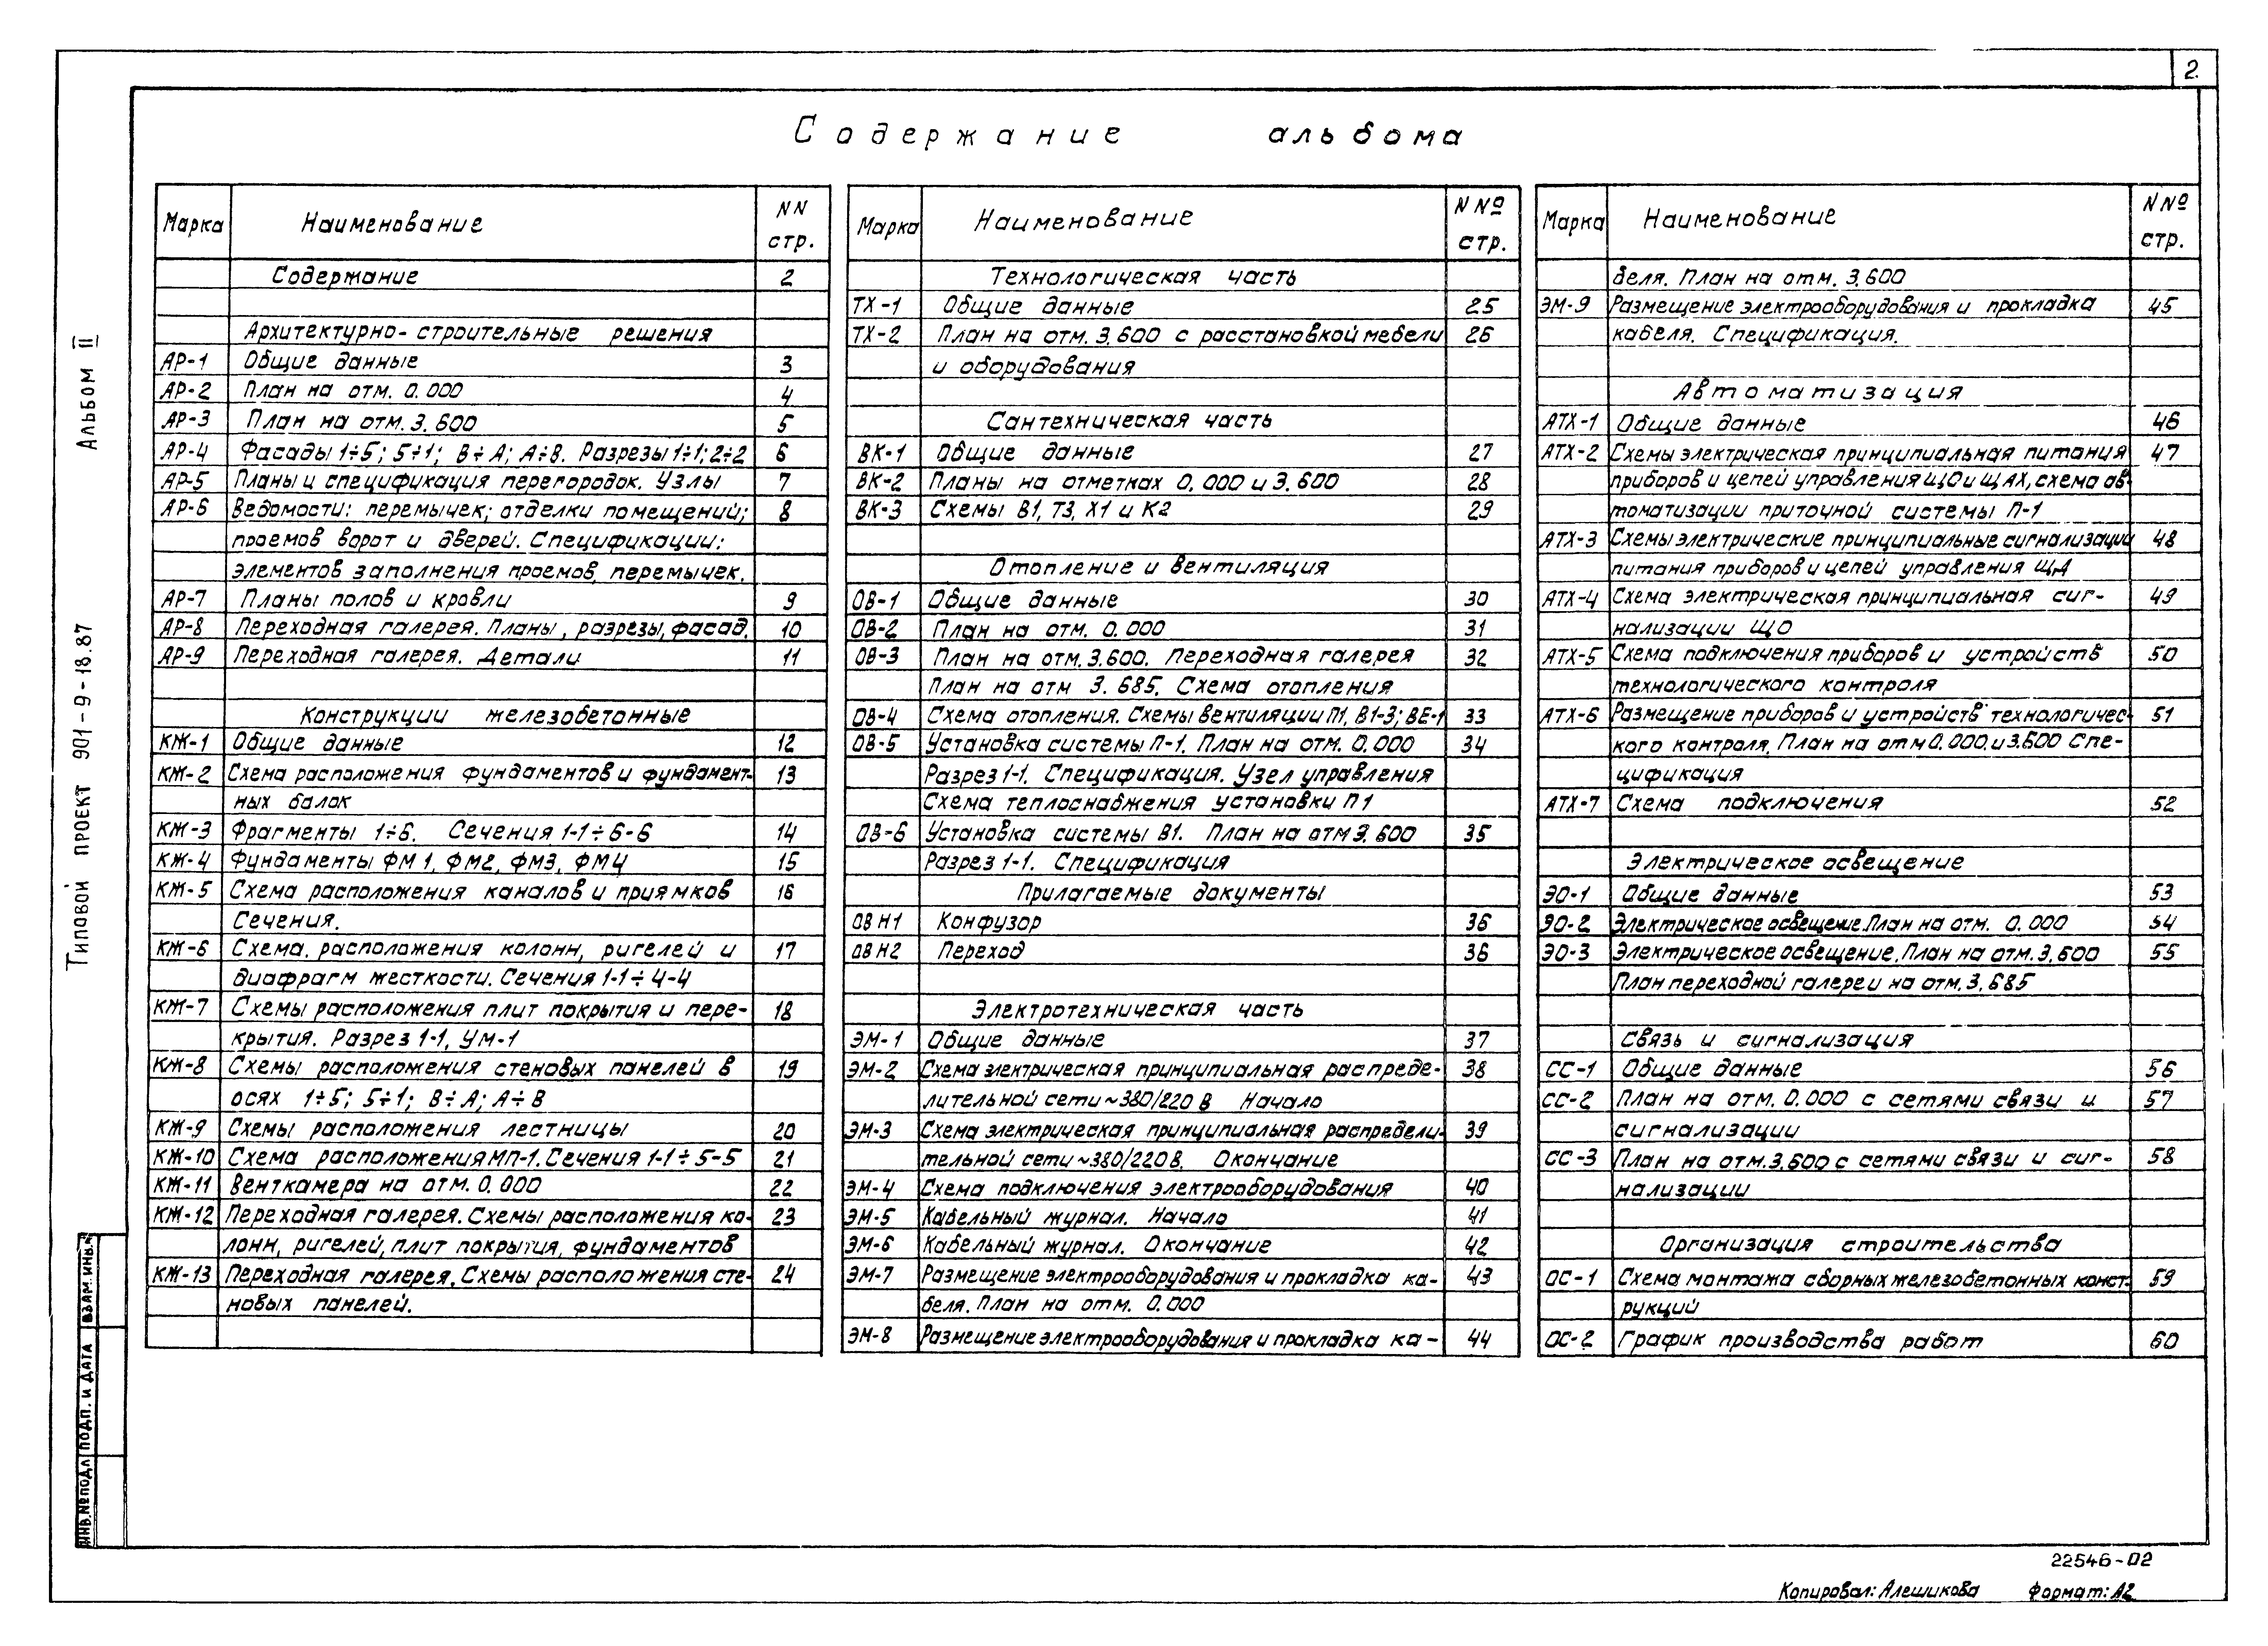 2
Содержание альбома
Марка Наименование NN стр.
Содержание 2
Архитектурно-строительные решения
АР-1 Общие данные 3
АР-2 План на отм. 0.000 4
АР-3 План на отм. 3.600 5
АР-4 Фасады 1÷5; 5÷1; В÷А; А÷В. Разрезы 1÷1; 2÷2 6
АР-5 Планы и спецификация перегородок. Узлы 7
АР-6 Ведомости: перемычек; отделки помещений; 8
проемов ворот и дверей. Спецификации:
элементов заполнения проемов, перемычек.
АР-7 Планы полов и кровли 9
АР-8 Переходная галерея. Планы, разрезы, фасад. 10
АР-9 Переходная галерея. Детали 11
Конструкции железобетонные
КЖ-1 Общие данные 12
КЖ-2 Схема расположения фундаментов и фундамент- 13
ных балок
КЖ-3 Фрагменты 1÷6. Сечения 1-1÷6-6 14
КЖ-4 Фундаменты ФМ1, ФМ2, ФМ3, ФМ4 15
КЖ-5 Схема расположения каналов и приямков 16
Сечения.
КЖ-6 Схема. расположения колонн, ригелей и 17
диафрагм жесткости. Сечения 1-1÷4-4
КЖ-7 Схемы расположения плит покрытия и пере- 18
крытия. Разрез 1-1, УМ-1
КЖ-8 Схемы расположения стеновых панелей в 19
осях 1÷5; 5÷1; В÷А; А÷В
КЖ-9 Схемы расположения лестницы 20
КЖ-10 Схема расположения МП-1. Сечения 1-1÷5-5 21
КЖ-11 Венткамера на отм. 0.000 22
КЖ-12 Переходная галерея. Схемы расположения ко- 23
лонн, ригелей, плит покрытия, фундаментов
КЖ-13 Переходная галерея. Схемы расположения сте- 24
новых панелей.
Марка Наименование NNº стр.
Технологическая часть
ТХ-1 Общие данные 25
ТХ-2 План на отм. 3.600 с расстановкой мебели 26
и оборудования
Сантехническая часть
ВК-1 Общие данные 27
ВК-2 Планы на отметках 0.000 и 3.600 28
ВК-3 Схемы В1, Т3, Х1 и К2 29
Отопление и вентиляция
ОВ-1 Общие данные 30
ОВ-2 План на отм. 0.000 31
ОВ-3 План на отм. 3.600. Переходная галерея 32
План на отм 3.685. Схема отопления
ОВ-4 Схема отопления. Схемы вентиляции П1, В1-3; ВЕ-1 33
ОВ-5 Установка системы П-1. План на отм. 0.000 34
Разрез 1-1. Спецификация. Узел управления
Схема теплоснабжения установки П1
ОВ-6 Установка системы В1. План на отм 3.600 35
Разрез 1-1. Спецификация
Прилагаемые документы
ОВ Н1 Конфузор 36
ОВ Н2 Переход 36
Электротехническая часть
ЭМ-1 Общие данные 37
ЭМ-2 Схема электрическая принципиальная распреде- 38
лительной сети ~380/220 В Начало
ЭМ-3 Схема электрическая принципиальная распредели- 39
тельной сети ~380/220В. Окончание
ЭМ-4 Схема подключения электрооборудования 40
ЭМ-5 Кабельный журнал. Начало 41
ЭМ-6 Кабельный журнал. Окончание 42
ЭМ-7 Размещение электрооборудования и прокладка ка- 43
беля. План на отм. 0.000
ЭМ-8 Размещение электрооборудования и прокладка ка- 44
Марка Наименование NNº стр.
беля. План на отм. 3.600
ЭМ-9 Размещение электрооборудования и прокладка 45
кабеля. Спецификация.
Автоматизация
АТХ-1 Общие данные 46
АТХ-2 Схемы электрическая принципиальная питания 47
приборов и цепей управления ЩО и ЩАХ, схема ав-
томатизации приточной системы П-1
АТХ-3 Схемы электрические принципиальные сигнализации 48
питания приборов и цепей управления ЩД
АТХ-4 Схема электрическая принципиальная сиг- 49
нализации ЩО
АТХ-5 Схема подключения приборов и устройств 50
технологического контроля
АТХ-6 Размещение приборов и устройств технологичес- 51
кого контроля. План на отм 0.000. и 3.600 Спе-
цификация
АТХ-7 Схема подключения 52
Электрическое освещение
ЭО-1 Общие данные 53
ЭО-2 Электрическое освещение. План на отм. 0.000 54
ЭО-3 Электрическое освещение. План на отм. 3.600 55
План переходной галереи на отм. 3.685
Связь и сигнализация
СС-1 Общие данные 56
СС-2 План на отм. 0.000 с сетями связи и 57
сигнализации
СС-3 План на отм. 3.600 с сетями связи и сиг- 58
нализации
Организация строительства
ОС-1 Схема монтажа сборных железобетонных конст- 59
рукций
ОС-2 График производства работ 60
Типовой проект 901-9-18.87 Альбом II
Инв.№подл Подп. и дата Взам. инв.№
22546-02
Копировал: Алешикова Формат: А2